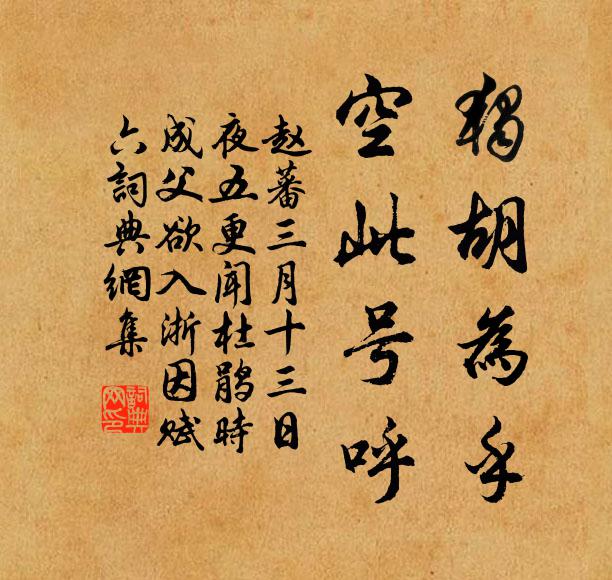 獨胡為乎
空此号呼
赵蕃三月十三日
夜五更闻杜鹃時
成父欲入浙因赋
六詞典網集
詞典
网印